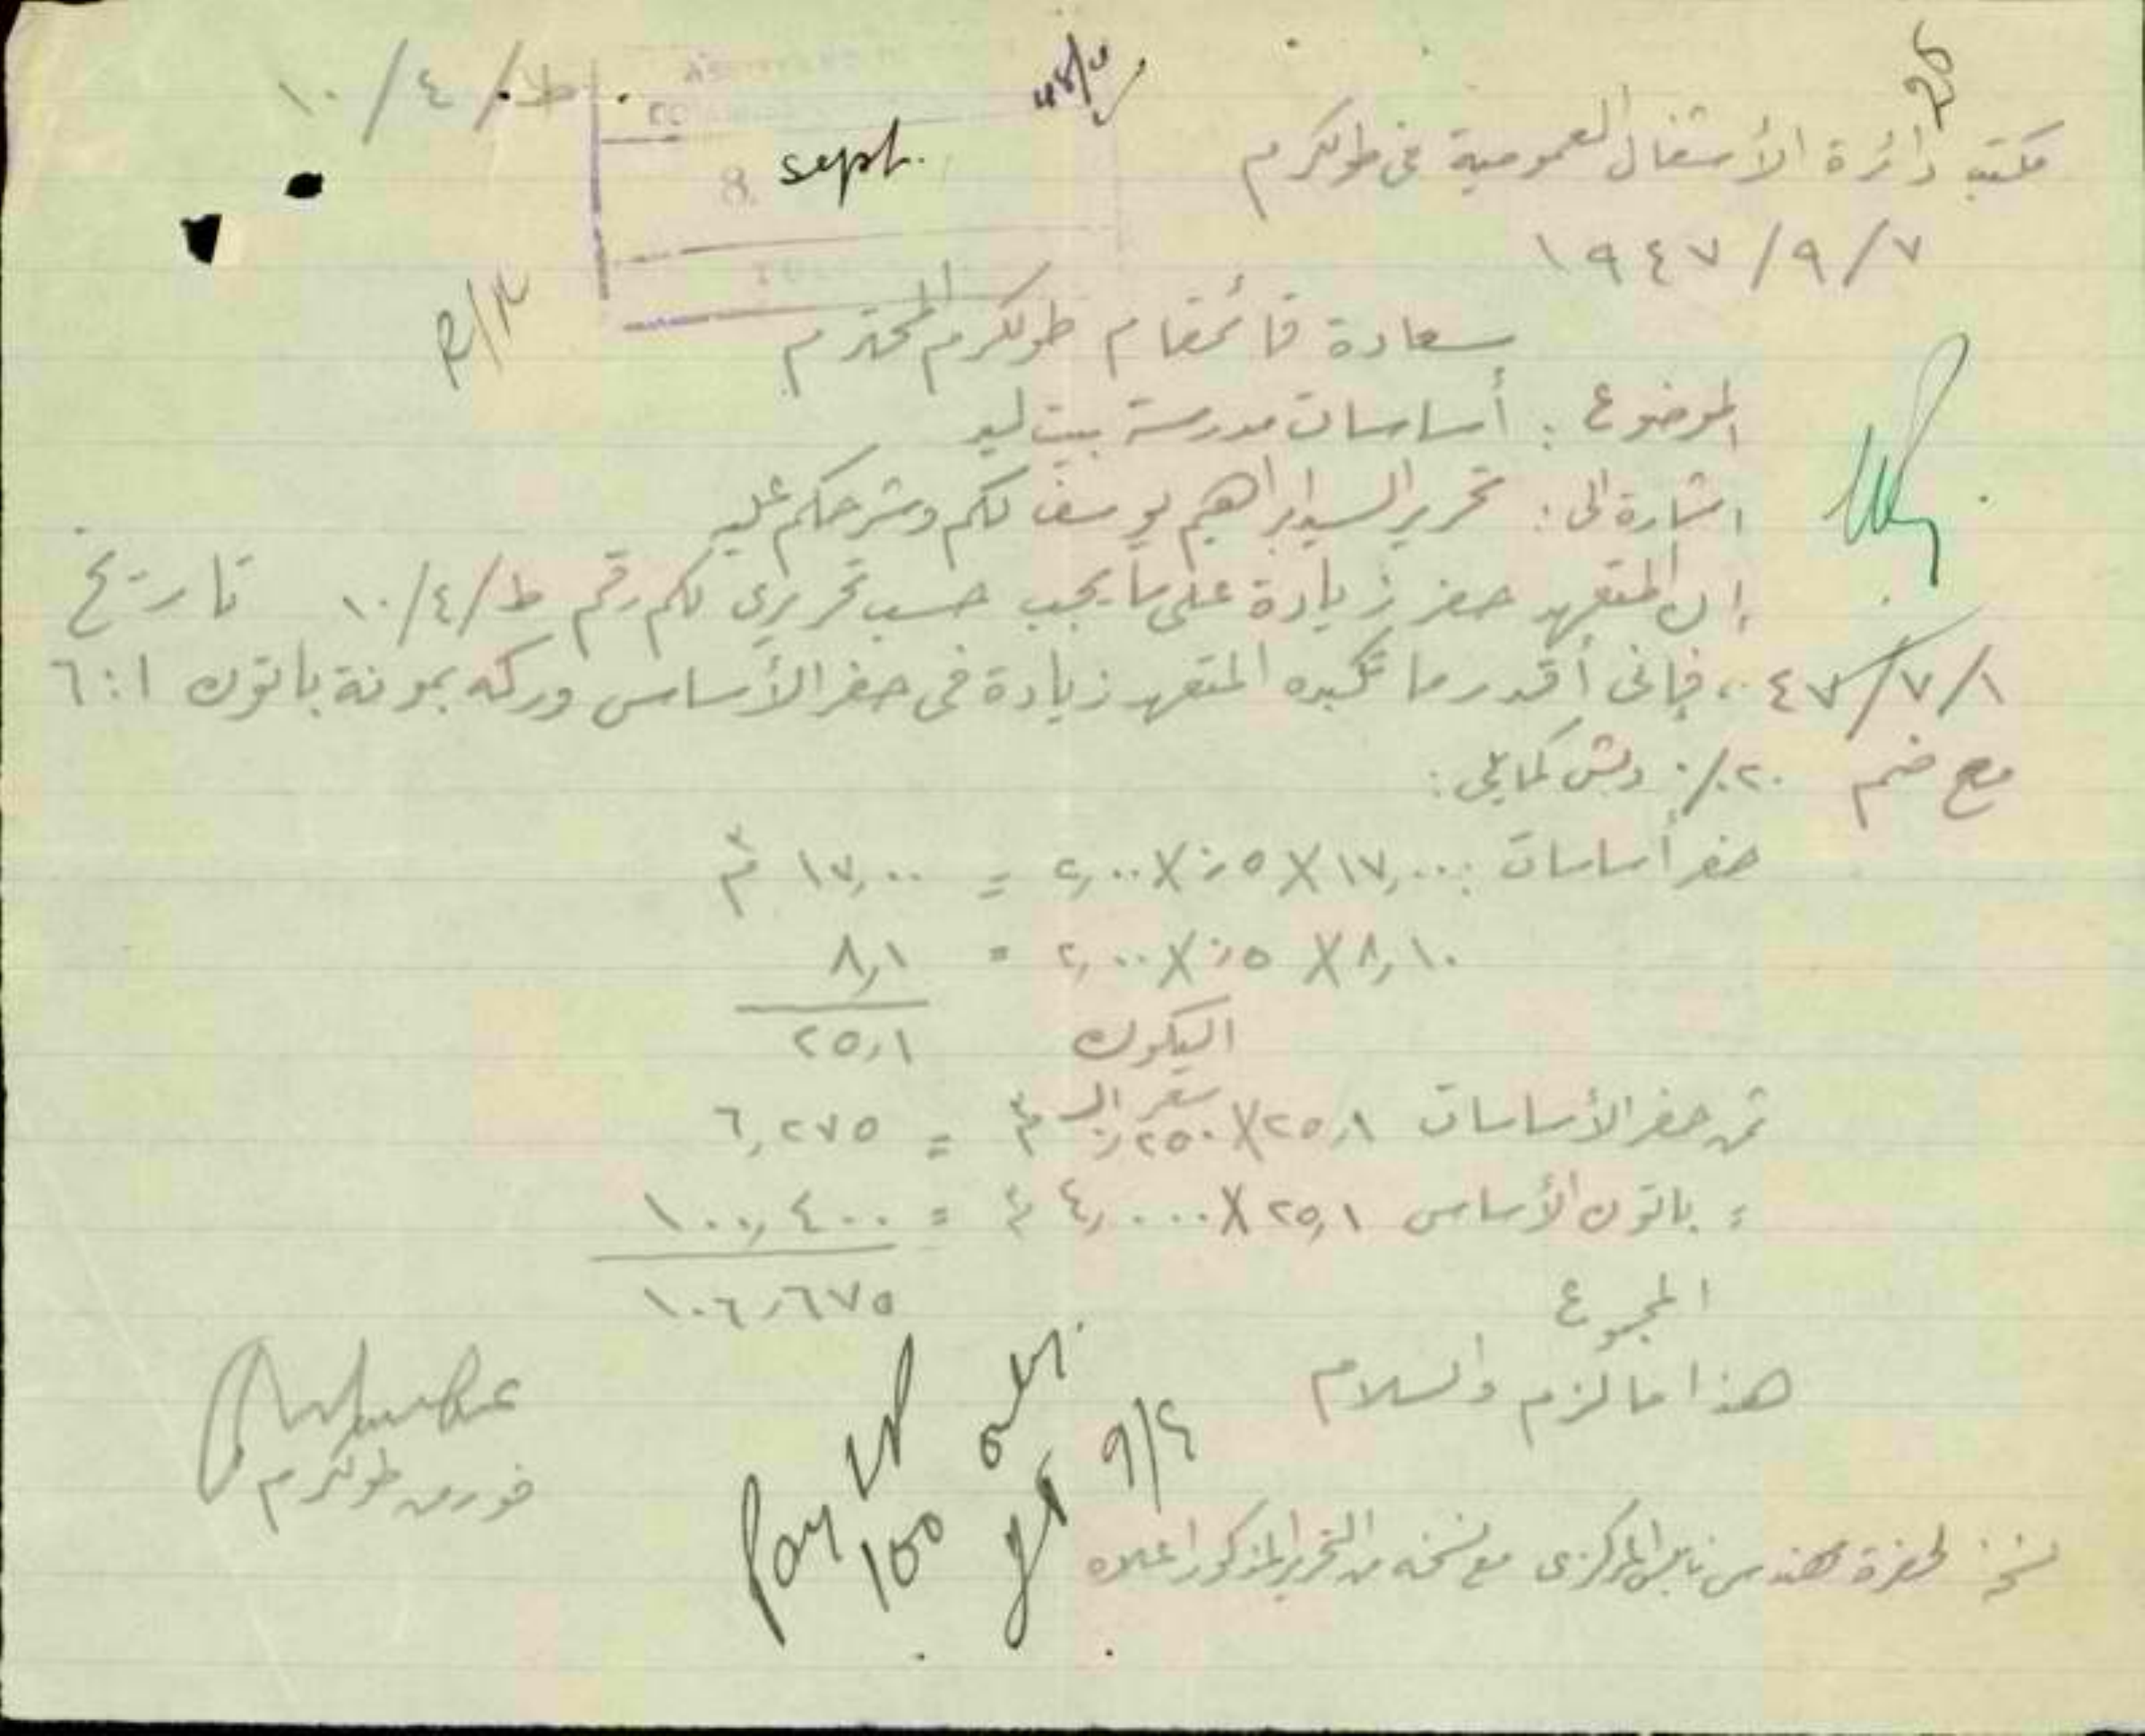 ط/٤/١٠
8 sept.
مكتب دائرة الأشغال العمومية في طولكرم
١٩٤٧/٩/٧
سعادة قائمقام طولكرم المحترم
الموضوع : أساسات مدرسة بيت ليد
اشارة الى : تحرير السيد ابراهيم يوسف لكم وشرحكم عليه
ان المتعهد حفر زيادة على ما يجب حسب تحريري لكم رقم ط/٤/١٠ تاريخ
٤٧/٧/١ ، فإنى أقدر ما تكبده المتعهد زيادة في حفر الأساس ودكه بمونة باتون ٦:١
مع ضم ٢٠٪ دبش كما يلي :
حفر أساسات : ١٧,٠٠ X ٥,٠ X ٢,٠٠ = ١٧,٠٠ م٣
٨,١٠ X ٥,٠ X ٢,٠٠ = ٨,١
اليكون ٢٥,١
ثمن حفر الأساسات ٢٥,١ X ٢٥٠,٠ سعر الـ م٣ = ٦,٢٧٥
= باتون الأساس ٢٥,١ X ٤,٠٠٠ م٣ = ١٠٠,٤٠٠
المجموع ١٠٦,٦٧٥
هذا ما لزم والسلام
فورمن طولكرم
Pay LP 100 only
٩/٤
نسخة لحضرة مهندس نابلس المركزى مع نسخه من التحرير المذكور اعلاه